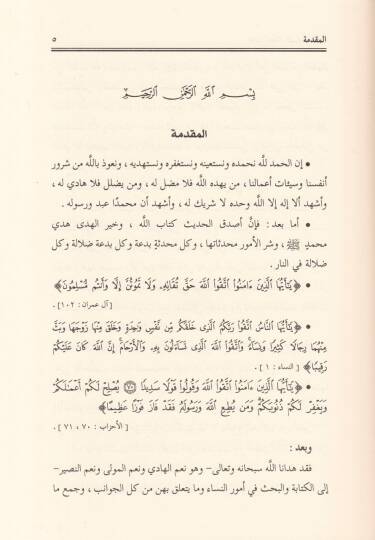 المقدمة ٥
بسم الله الرحمن الرحيم
المقدمة
• إن الحمد لله نحمده ونستعينه ونستغفره ونستهديه ، ونعوذ بالله من شرور
أنفسنا وسيئات أعمالنا ، من يهده الله فلا مضل له ، ومن يضلل فلا هادي له ،
وأشهد ألا إله إلا الله وحده لا شريك له ، وأشهد أن محمدًا عبد ورسوله .
• أما بعد : فإنَّ أصدق الحديث كتاب الله ، وخير الهدى هدي
محمدٍ ﷺ ، وشر الأمور محدثاتها ، وكل محدثةٍ بدعة وكل بدعة ضلالة وكل
ضلالة في النار .
• ﴿يَٰٓأَيُّهَا ٱلَّذِينَ ءَامَنُوا۟ ٱتَّقُوا۟ ٱللَّهَ حَقَّ تُقَاتِهِۦ وَلَا تَمُوتُنَّ إِلَّا وَأَنتُم مُّسْلِمُونَ﴾
[آل عمران : ١٠٢] .
• ﴿يَٰٓأَيُّهَا ٱلنَّاسُ ٱتَّقُوا۟ رَبَّكُمُ ٱلَّذِى خَلَقَكُم مِّن نَّفْسٍ وَٰحِدَةٍ وَخَلَقَ مِنْهَا زَوْجَهَا وَبَثَّ
مِنْهُمَا رِجَالًا كَثِيرًا وَنِسَآءً وَٱتَّقُوا۟ ٱللَّهَ ٱلَّذِى تَسَآءَلُونَ بِهِۦ وَٱلْأَرْحَامَ إِنَّ ٱللَّهَ كَانَ عَلَيْكُمْ
رَقِيبًا﴾ [النساء : ١] .
• ﴿يَٰٓأَيُّهَا ٱلَّذِينَ ءَامَنُوا۟ ٱتَّقُوا۟ ٱللَّهَ وَقُولُوا۟ قَوْلًا سَدِيدًا ٧٠ يُصْلِحْ لَكُمْ أَعْمَٰلَكُمْ
وَيَغْفِرْ لَكُمْ ذُنُوبَكُمْ وَمَن يُطِعِ ٱللَّهَ وَرَسُولَهُۥ فَقَدْ فَازَ فَوْزًا عَظِيمًا﴾
[الأحزاب : ٧٠ ، ٧١] .
وبعد :
فقد هدانا الله سبحانه وتعالى- وهو نعم الهادي ونعم المولى ونعم النصير-
إلى الكتابة والبحث في أمور النساء وما يتعلق بهن من كل الجوانب ، وجمع ما